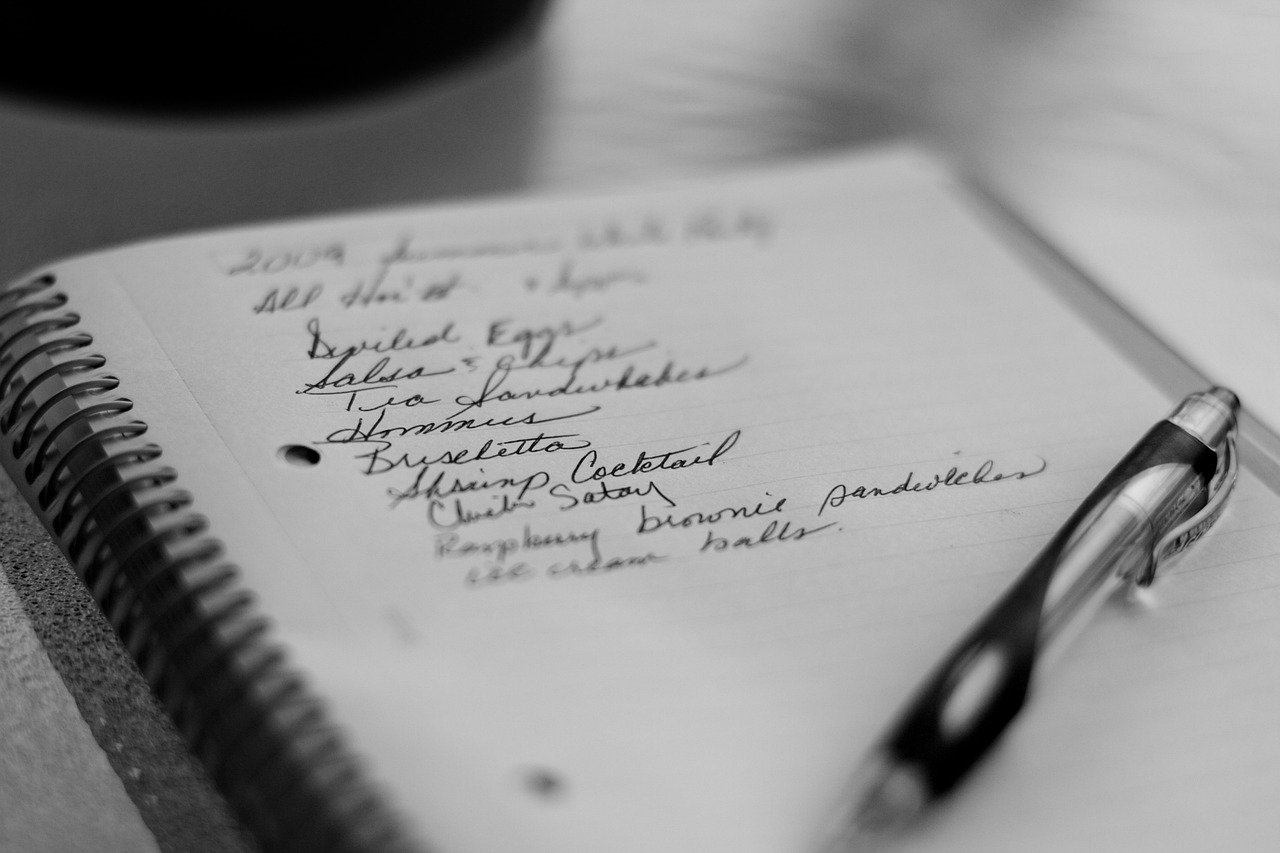 2009 Summer White Party
All Hor
Deviled Eggs
Salsa & Chips
Tea Sandwhiches
Hommus
Bruschetta
Shrimp Cocktail
Satay
Raspberry brownie sandwiches
ice cream balls.